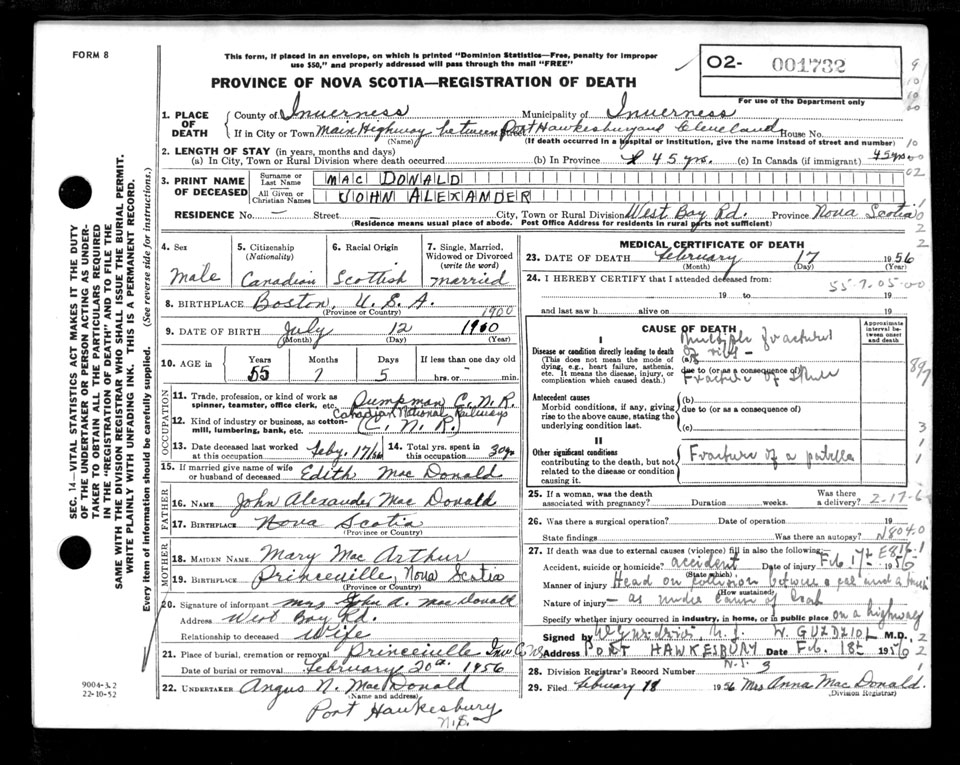 FORM 8
This form, if placed in an envelope, on which is printed "Dominion Statistics—Free, penalty for improper
use $50," and properly addressed will pass through the mail "FREE"
PROVINCE OF NOVA SCOTIA—REGISTRATION OF DEATH
O2- 001732
For use of the Department only
SEC. 14—VITAL STATISTICS ACT MAKES IT THE DUTY
OF THE UNDERTAKER OR PERSON ACTING AS UNDER-
TAKER TO OBTAIN ALL THE PARTICULARS REQUIRED
IN THE "REGISTRATION OF DEATH" AND TO FILE THE
SAME WITH THE DIVISION REGISTRAR WHO SHALL ISSUE THE BURIAL PERMIT.
WRITE PLAINLY WITH UNFADING INK. THIS IS A PERMANENT RECORD.
Every item of information should be carefully supplied. (See reverse side for instructions.)
1. PLACE OF DEATH
County of Inverness Municipality of Inverness
If in City or Town Main Highway between Port Hawkesbury and Cleveland House No.
(Name) (If death occurred in a hospital or institution, give the name instead of street and number)
2. LENGTH OF STAY (in years, months and days)
(a) In City, Town or Rural Division where death occurred (b) In Province 45 yrs. (c) In Canada (if immigrant) 45 yrs.
3. PRINT NAME OF DECEASED
Surname or Last Name MAC DONALD
All Given or Christian Names JOHN ALEXANDER
RESIDENCE No. — Street City, Town or Rural Division West Bay Rd. Province Nova Scotia
(Residence means usual place of abode. Post Office Address for residents in rural parts not sufficient)
4. Sex Male
5. Citizenship (Nationality) Canadian
6. Racial Origin Scottish
7. Single, Married, Widowed or Divorced (write the word) Married
8. BIRTHPLACE Boston, U.S.A.
(Province or Country) 1900
9. DATE OF BIRTH July 12 1900
(Month) (Day) (Year)
10. AGE in Years 55 Months 7 Days 5 If less than one day old hrs. or — min.
OCCUPATION
11. Trade, profession, or kind of work as spinner, teamster, office clerk, etc. Pumpman C.N.R.
Canadian National Railways
12. Kind of industry or business, as cotton-mill, lumbering, bank, etc. (C.N.R.)
13. Date deceased last worked at this occupation Feby. 17/56
14. Total yrs. spent in this occupation 30 yrs
15. If married give name of wife or husband of deceased Edith Mac Donald
FATHER
16. NAME John Alexander Mac Donald
17. BIRTHPLACE Nova Scotia
(Province or Country)
MOTHER
18. MAIDEN NAME Mary Mac Arthur
19. BIRTHPLACE Princeville, Nova Scotia
(Province or Country)
20. Signature of informant Mrs John A. Mac Donald
Address West Bay Rd.
Relationship to deceased Wife
21. Place of burial, cremation or removal Princeville Inv. Co. N.S.
Date of burial or removal February 20th. 1956
22. UNDERTAKER Angus N. Mac Donald
(Name and address)
Port Hawkesbury
N.S.
9004-3.2
22-10-52
MEDICAL CERTIFICATE OF DEATH
23. DATE OF DEATH February 17 1956
(Month) (Day) (Year)
24. I HEREBY CERTIFY that I attended deceased from:
19 to 19
and last saw h alive on 19
CAUSE OF DEATH
Approximate interval between onset and death
I
Disease or condition directly leading to death
(This does not mean the mode of dying, e.g., heart failure, asthenia, etc. It means the disease, injury, or complication which caused death.)
(a) Multiple fractures of ribs —
due to (or as a consequence of)
Fracture of Skull
Antecedent causes
Morbid conditions, if any, giving rise to the above cause, stating the underlying condition last.
(b)
due to (or as a consequence of)
(c)
II
Other significant conditions contributing to the death, but not related to the disease or condition causing it.
Fracture of a patella
25. If a woman, was the death associated with pregnancy? Duration weeks. Was there a delivery?
26. Was there a surgical operation? Date of operation 19
State findings Was there an autopsy? N804.0
27. If death was due to external causes (violence) fill in also the following: E816.1
Accident, suicide or homicide? accident Date of injury Feb 17th 1956
(State which)
Manner of injury Head on collision between a car and a truck
(How sustained)
Nature of injury — as under Cause of Death
Specify whether injury occurred in industry, in home, or in public place on a highway
Signed by W. GUZDZIOL M.D.
Address PORT HAWKESBURY Date Feb. 18th 1956
N.S.
28. Division Registrar's Record Number 3
29. Filed February 18 1956 Mrs Anna Mac Donald.
(Division Registrar)